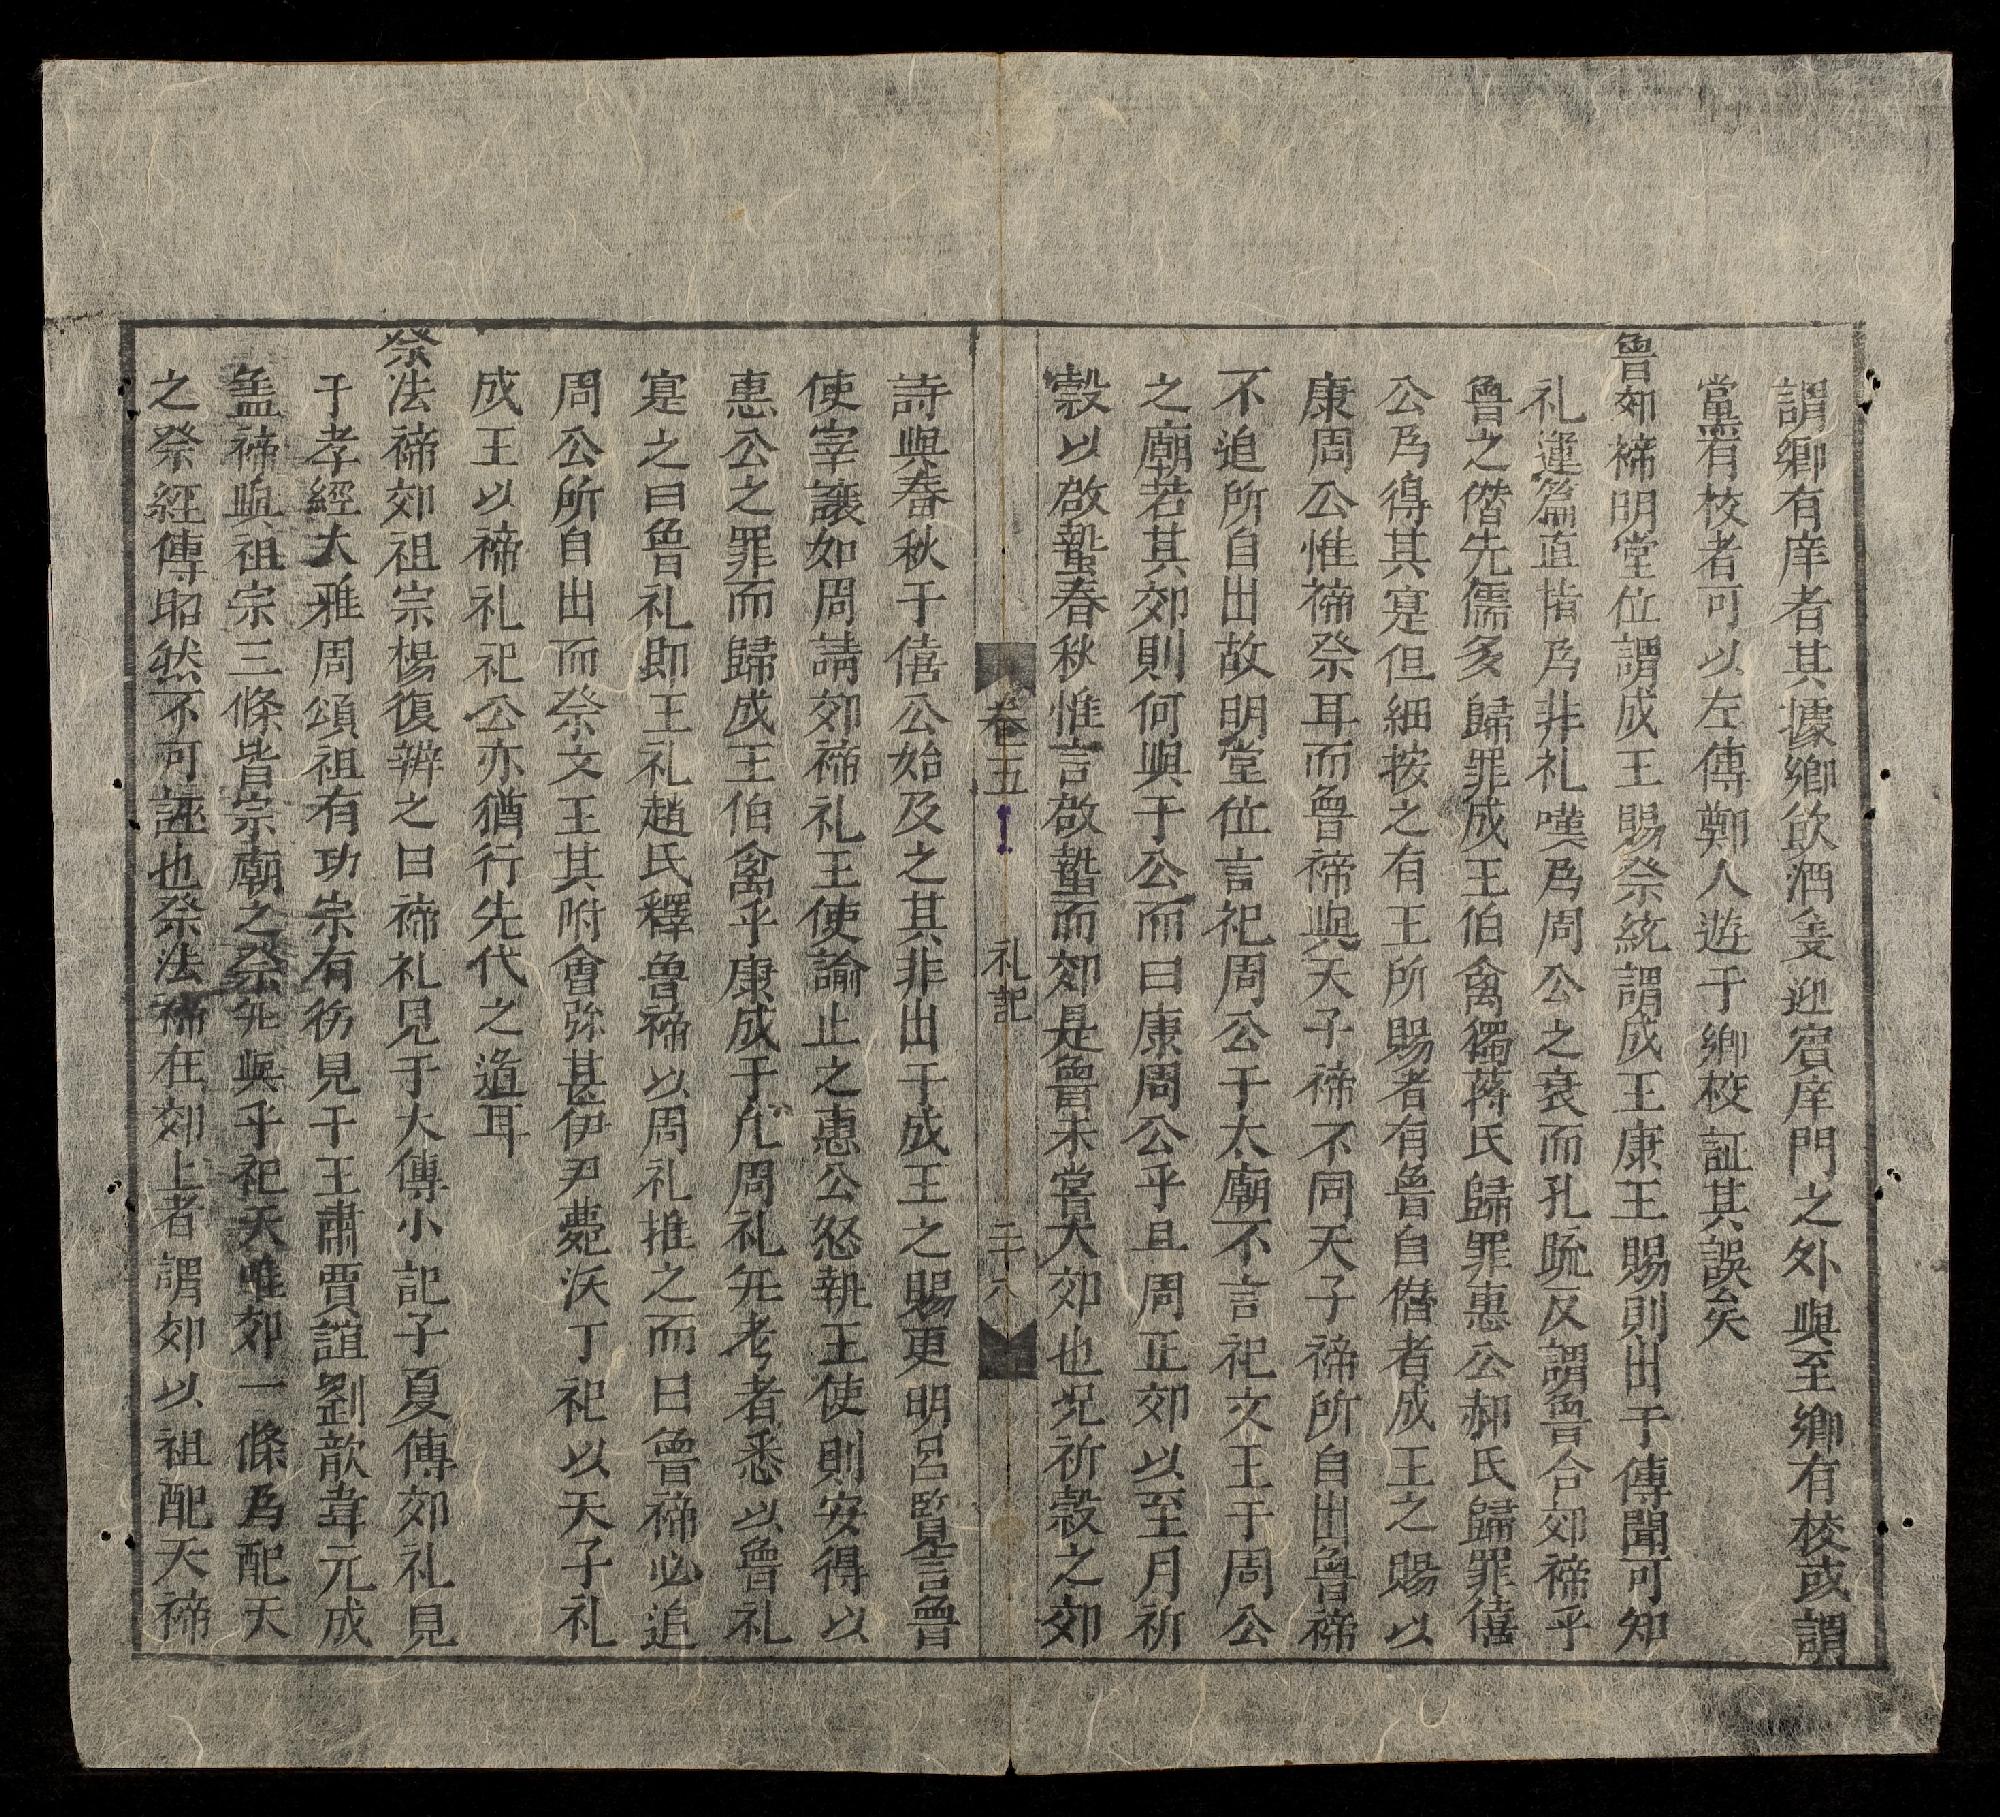 謂鄉有庠者其據鄉飲酒主迎賓庠門之外與至鄉有校或謂
黨有校者可以左傳鄭人遊于鄉校証其誤矣
魯郊禘明堂位謂成王賜祭統謂成王康王賜則出于傳聞可知
礼運篇直指為非礼嘆為周公之衰而孔疏反謂魯合郊禘乎
魯之僭先儒多歸罪成王伯禽獨蔣氏歸罪惠公郝氏歸罪僖
公為得其寔但細按之有王所賜者有魯自僭者成王之賜以
康周公惟禘祭耳而魯禘與天子禘不同天子禘所自出魯禘
不追所自出故明堂位言祀周公于太廟不言祀文王于周公
之廟若其郊則何與于公而曰康周公乎且周正郊以至月祈
穀以啟蟄春秋惟言啟蟄而郊是魯未嘗大郊也况祈穀之郊
卷五 礼記 二十八
詩與春秋于僖公始及之其非出于成王之賜更明呂覽言魯
使宰讓如周請郊禘礼王使諭止之惠公怒執王使則安得以
惠公之罪而歸成王伯禽乎康成于凡周礼無考者悉以魯礼
寔之曰魯礼即王礼趙氏釋魯禘以周礼推之而曰魯禘必追
周公所自出而祭文王其附會弥甚伊尹薨沃丁祀以天子礼
成王以禘礼祀公亦猶行先代之道耳
祭法禘郊祖宗楊復辨之曰禘礼見于大傳小記子夏傳郊礼見
于孝經大雅周頌祖有功宗有德見于王肅賈誼劉歆韋元成
盖禘與祖宗三條皆宗廟之祭無與乎祀天惟郊一條為配天
之祭經傳昭然不可誣也祭法禘在郊上者謂郊以祖配天禘